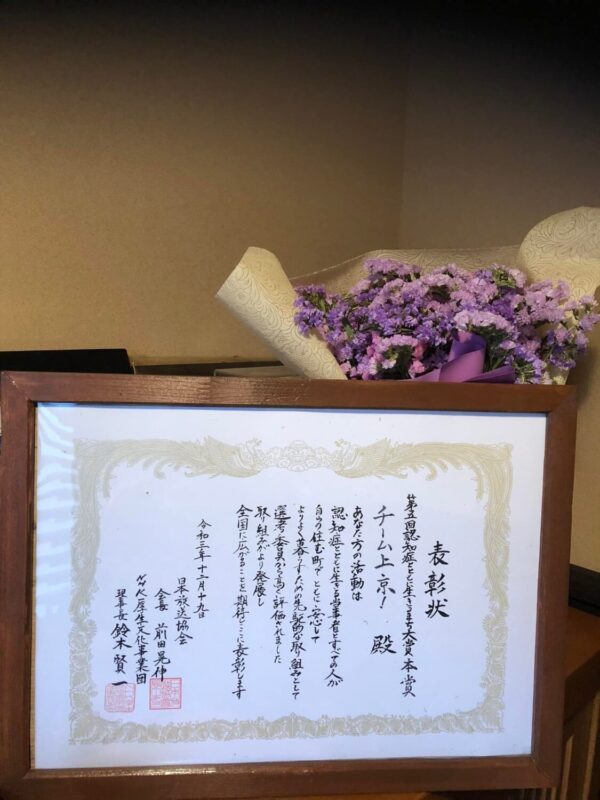 表彰状
第五回認知症とともに生きるまち大賞 本賞
チーム上京！ 殿
あなた方の活動は
認知症とともに生きる当事者とすべての人が
自らの住む町で ともに 安心して
よりよく暮らすための先駆的な取り組みとして
選考委員から高く評価されました
取り組みがより発展し
全国に広がることを期待しここに表彰します
令和三年十二月十九日
日本放送協会
会長 前田晃伸
NHK厚生文化事業団
理事長 鈴木賢一